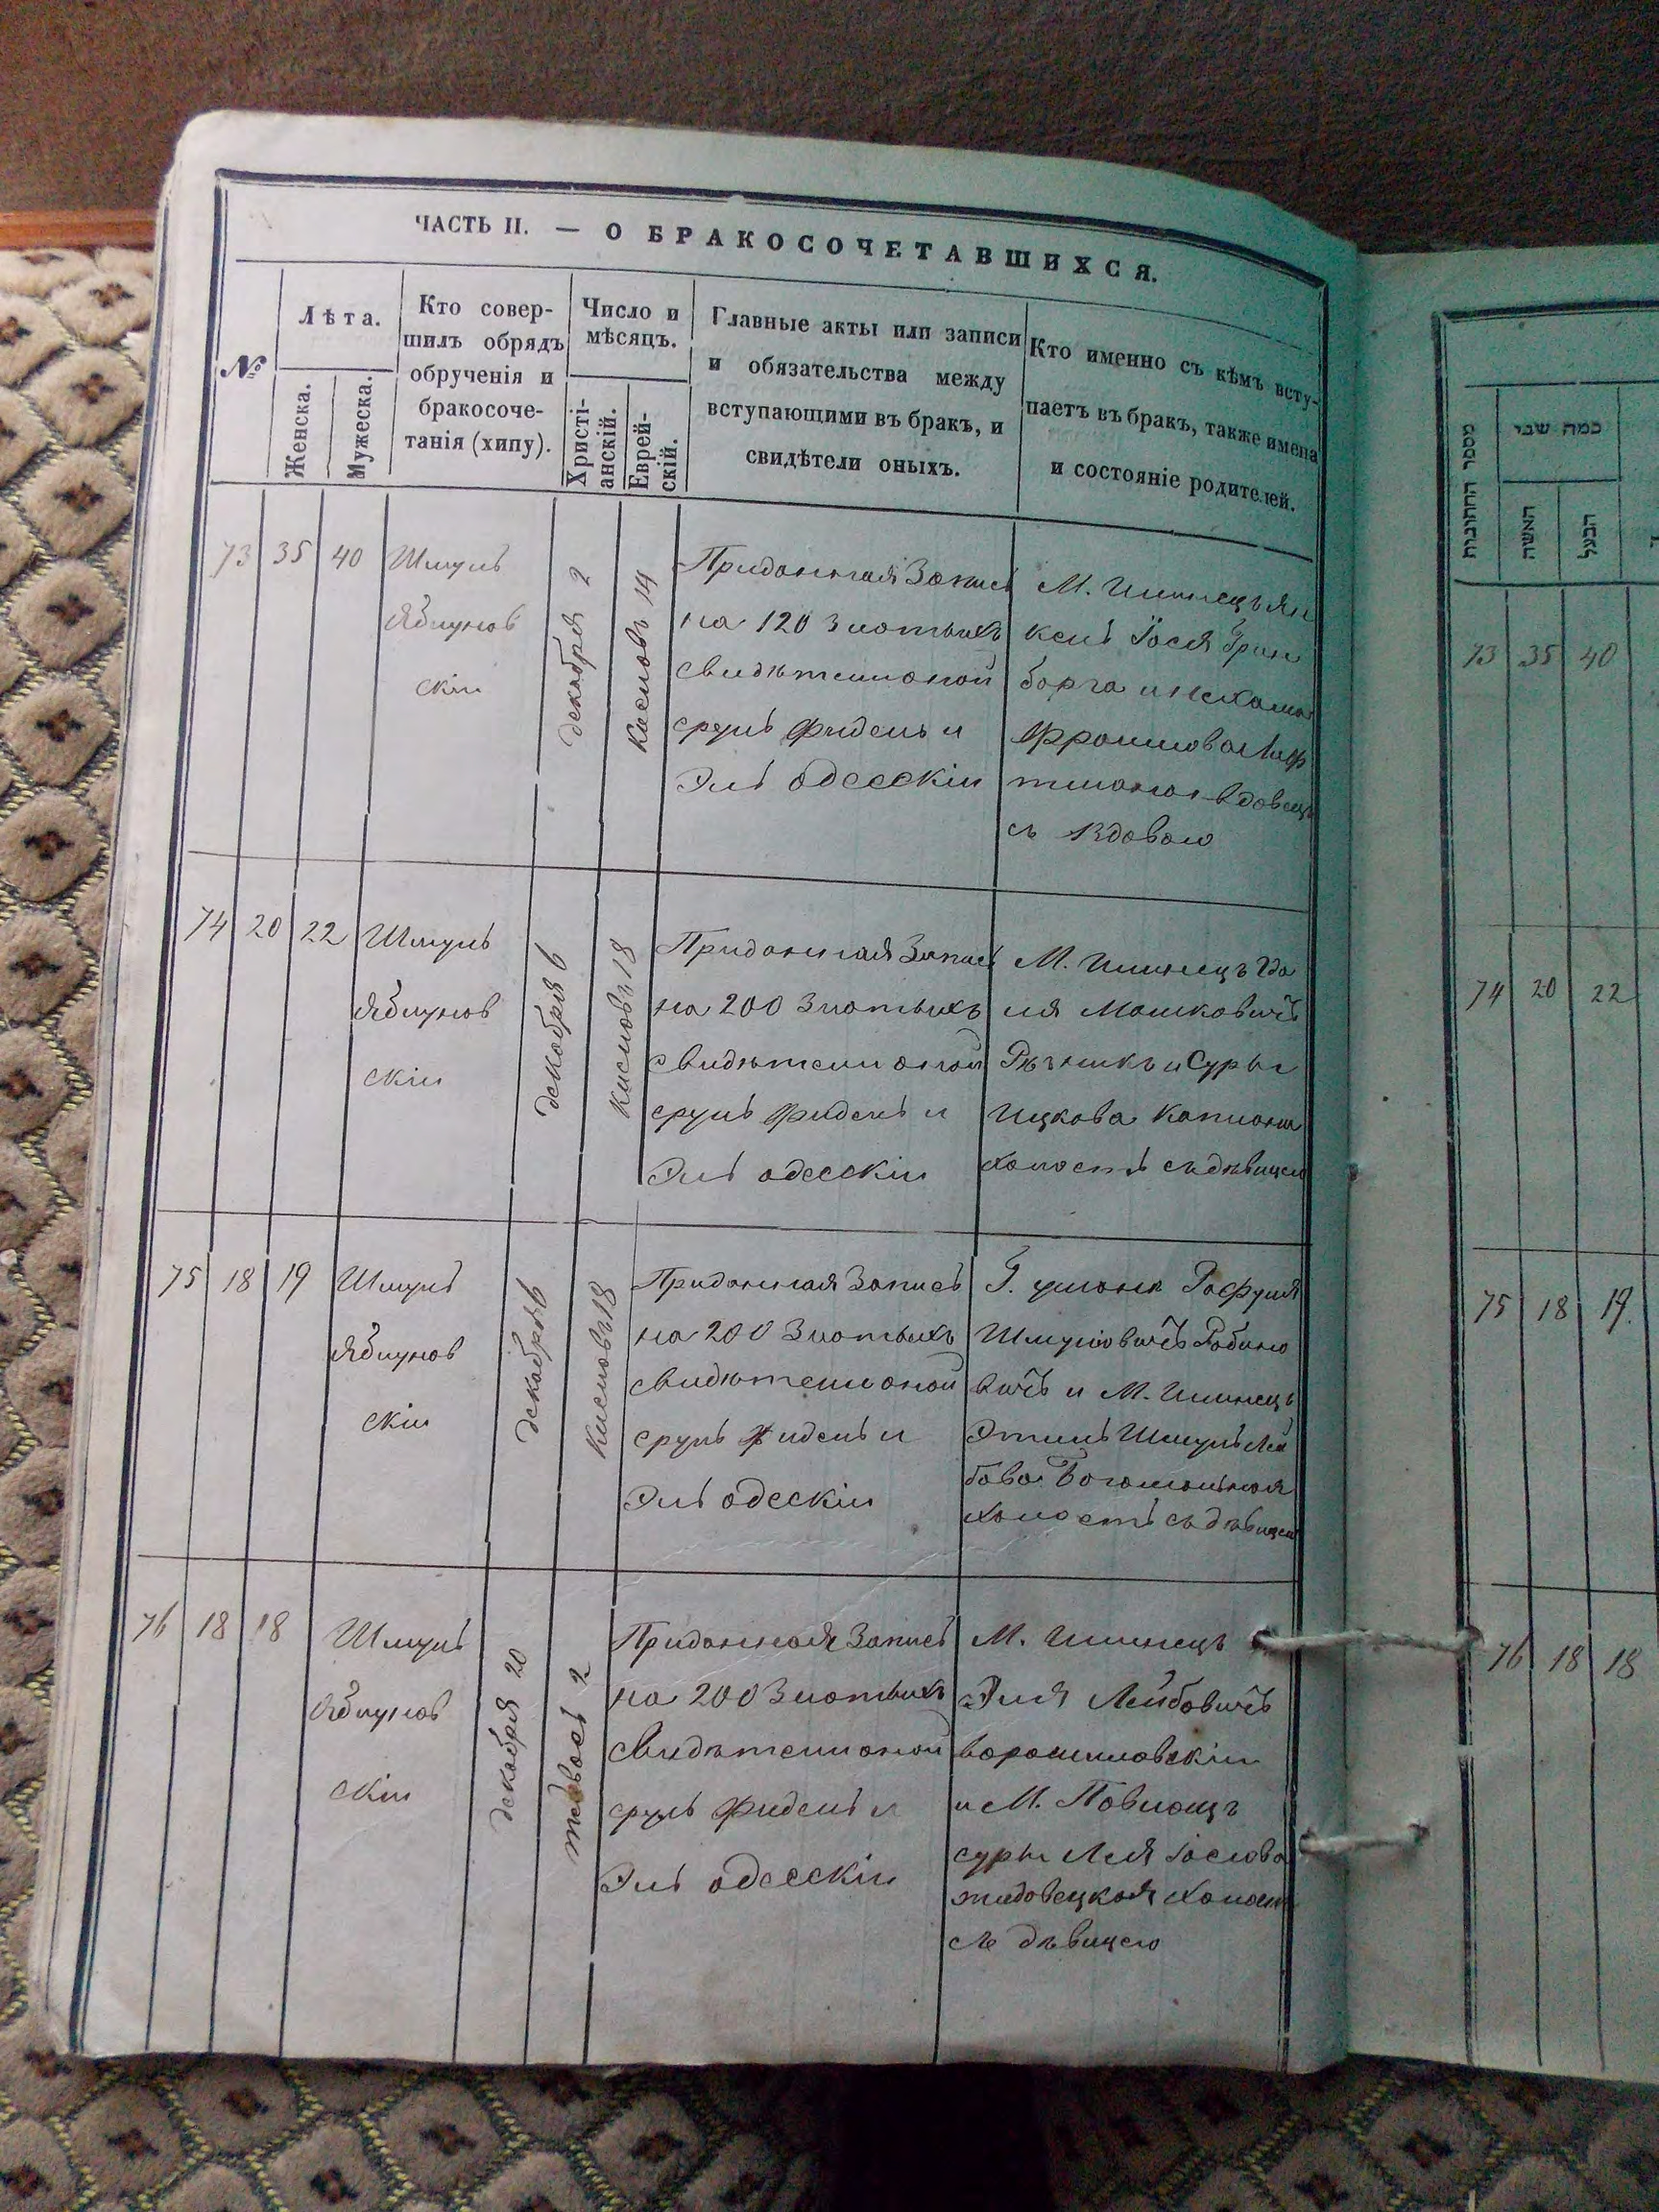 ЧАСТЬ II. — О БРАКОСОЧЕТАВШИХСЯ.
№
Лѣта.
Женска.
Мужеска.
Кто совер-
шилъ обрядъ
обрученія и
бракосоче-
танія (хипу).
Число и
мѣсяцъ.
Христі-
анскій.
Еврей-
скій.
Главные акты или записи
и обязательства между
вступающими въ бракъ, и
свидѣтели оныхъ.
Кто именно съ кѣмъ всту-
паетъ въ бракъ, также имена
и состояніе родителей.
73 35 40
Шмуль
Яблунов
скіи
декабря 2
кислювъ 14
Приданная Запись
на 120 Злотыхъ
свидѣтели оной
сруль Фидель и
Эль одесскіи
М. Илинецъ Ян
кель Іося Грин
борга и нехама
Фроимова
вдовец
съ Вдовою
74 20 22
Шмуль
Яблунов
скіи
декабря 6
кислювъ 18
Приданная Запись
на 200 Злотыхъ
свидѣтели оной
сруль Фидель и
Эль одесскіи
М. Илинецъ Да
ля Мошковичъ
Рѣзникъ и Суры
Ицкова Каплони
холостъ съ дѣвицею
75 18 19
Шмуль
Яблунов
скіи
декабря 6
кислювъ 18
Приданная Запись
на 200 Злотыхъ
свидѣтели оной
сруль Фидель и
Эль одескіи
Г. умоня Рафуля
Шмулювичъ Рабино
вичъ и М. Илинецъ
Этель Шмуль Лей
бова Богомольная
холостъ съ дѣвицею
76 18 18
Шмуль
Яблунов
скіи
декабря 20
тейвось 2
Приданная Запись
на 200 Злотыхъ
свидѣтели оной
сруль Фидель и
Эль одесскіи
М. Илинецъ
Эля Лейбовичъ
ворошиловскіи
и М. Повлощъ
суры Лея Іослова
жидовецкая холост
съ дѣвицею
מספר החתונות
כמה שני
האשה
הבעל
73 35 40
74 20 22
75 18 19.
76 18 18